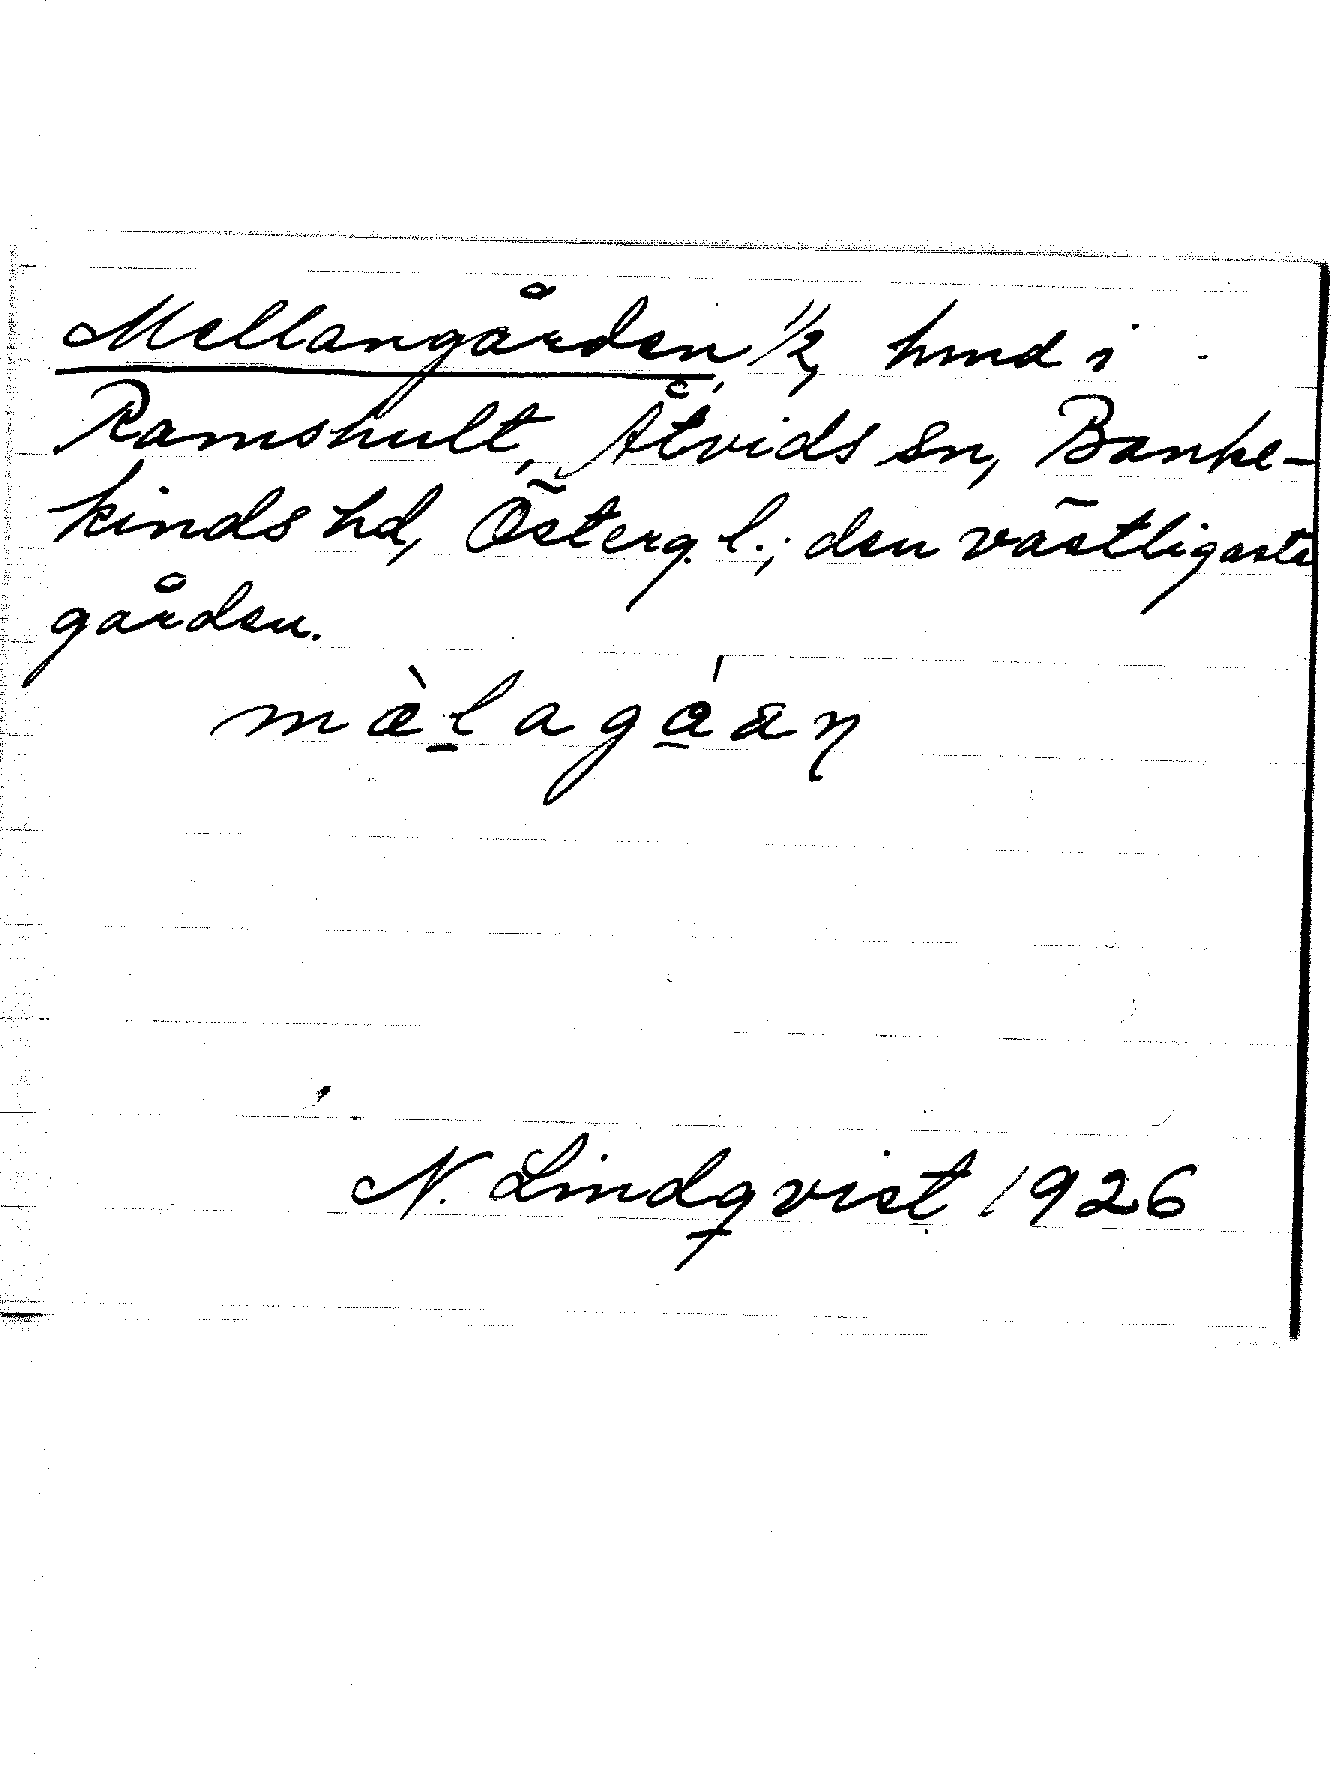 Mellangården, 1/2, hmd i
Ramshult, Åtvids sn, Banke-
kinds hd, Österg. l.; den västligaste
gården.
mæ̀l̠agǻ̠an
N. Lindqvist 1926